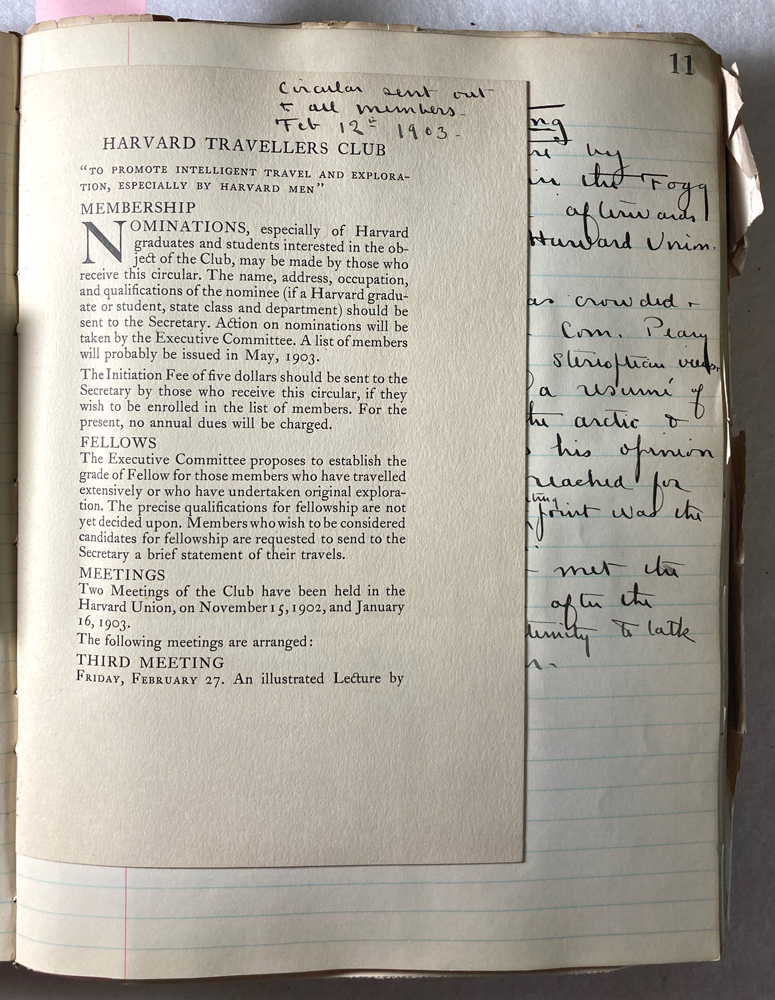 11
Circular sent out
to all members.
Feb 12th 1903.
HARVARD TRAVELLERS CLUB
"TO PROMOTE INTELLIGENT TRAVEL AND EXPLORA-
TION, ESPECIALLY BY HARVARD MEN"
MEMBERSHIP
NOMINATIONS, especially of Harvard
graduates and students interested in the ob-
ject of the Club, may be made by those who
receive this circular. The name, address, occupation,
and qualifications of the nominee (if a Harvard gradu-
ate or student, state class and department) should be
sent to the Secretary. Action on nominations will be
taken by the Executive Committee. A list of members
will probably be issued in May, 1903.
The Initiation Fee of five dollars should be sent to the
Secretary by those who receive this circular, if they
wish to be enrolled in the list of members. For the
present, no annual dues will be charged.
FELLOWS
The Executive Committee proposes to establish the
grade of Fellow for those members who have travelled
extensively or who have undertaken original explora-
tion. The precise qualifications for fellowship are not
yet decided upon. Members who wish to be considered
candidates for fellowship are requested to send to the
Secretary a brief statement of their travels.
MEETINGS
Two Meetings of the Club have been held in the
Harvard Union, on November 15, 1902, and January
16, 1903.
The following meetings are arranged:
THIRD MEETING
FRIDAY, FEBRUARY 27. An illustrated Lecture by
ng
re by
in the Fogg
afterwards
Harvard Union.
as crowded &
Com. Peary
stereoptican views.
a resumé of
the arctic &
his opinion
reached for
point was the
met the
after the
tunity to talk